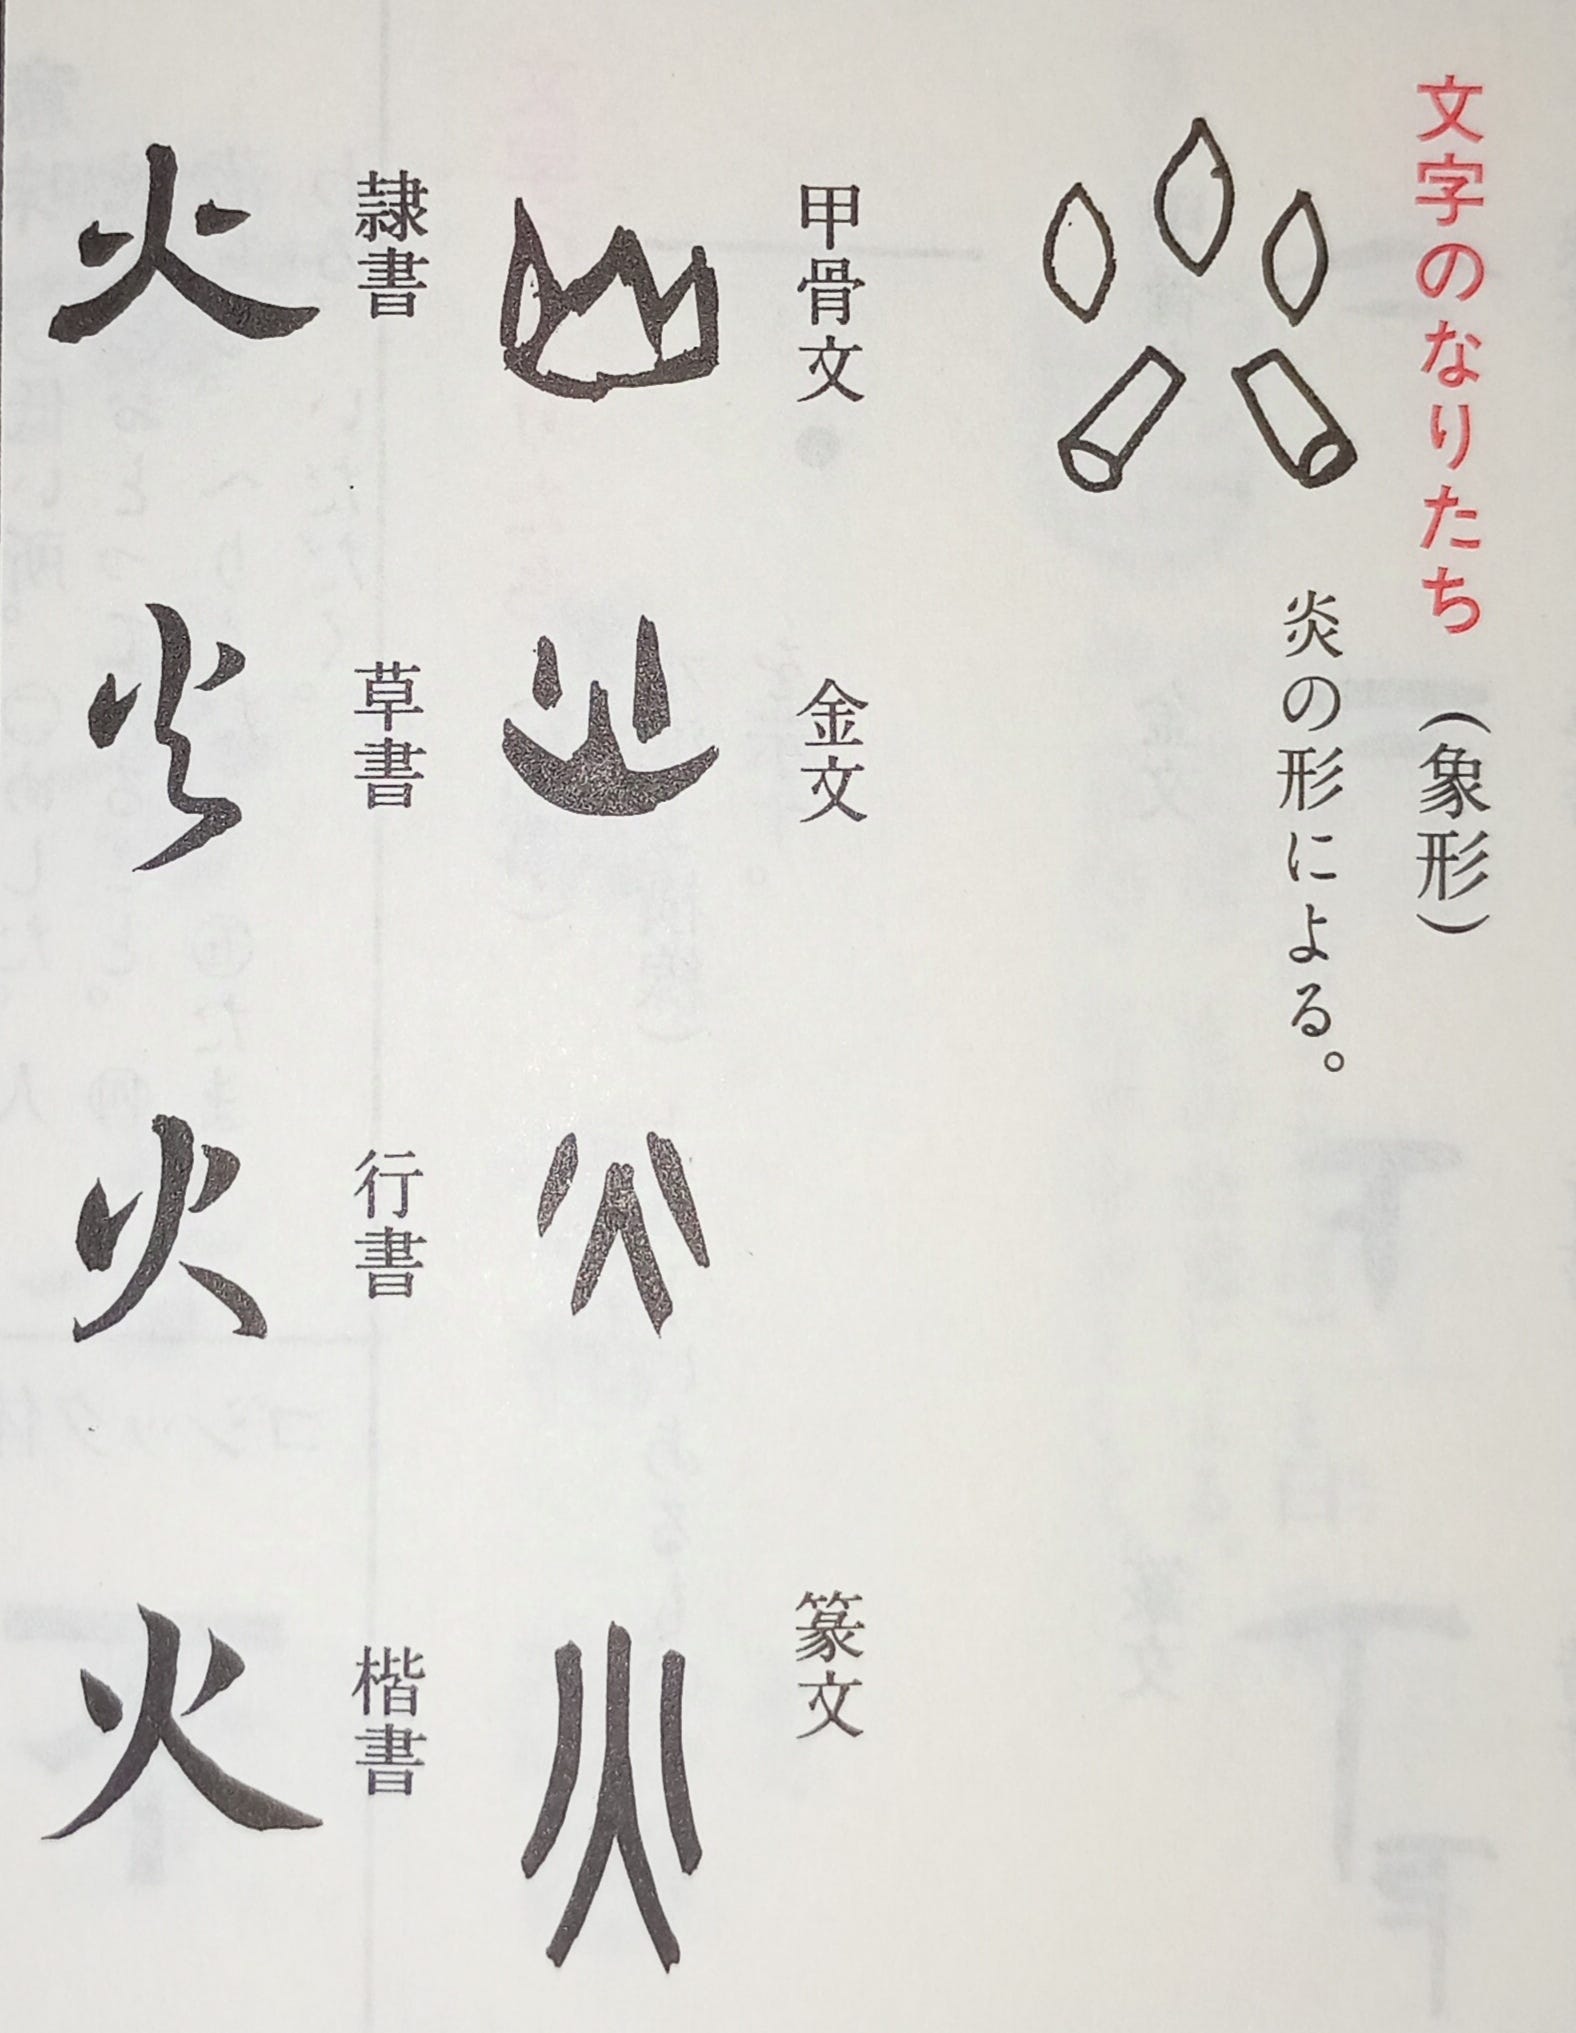 文字のなりたち（象形）
炎の形による。
甲骨文
金文
篆文
隷書
草書
行書
楷書
火
火
火
火